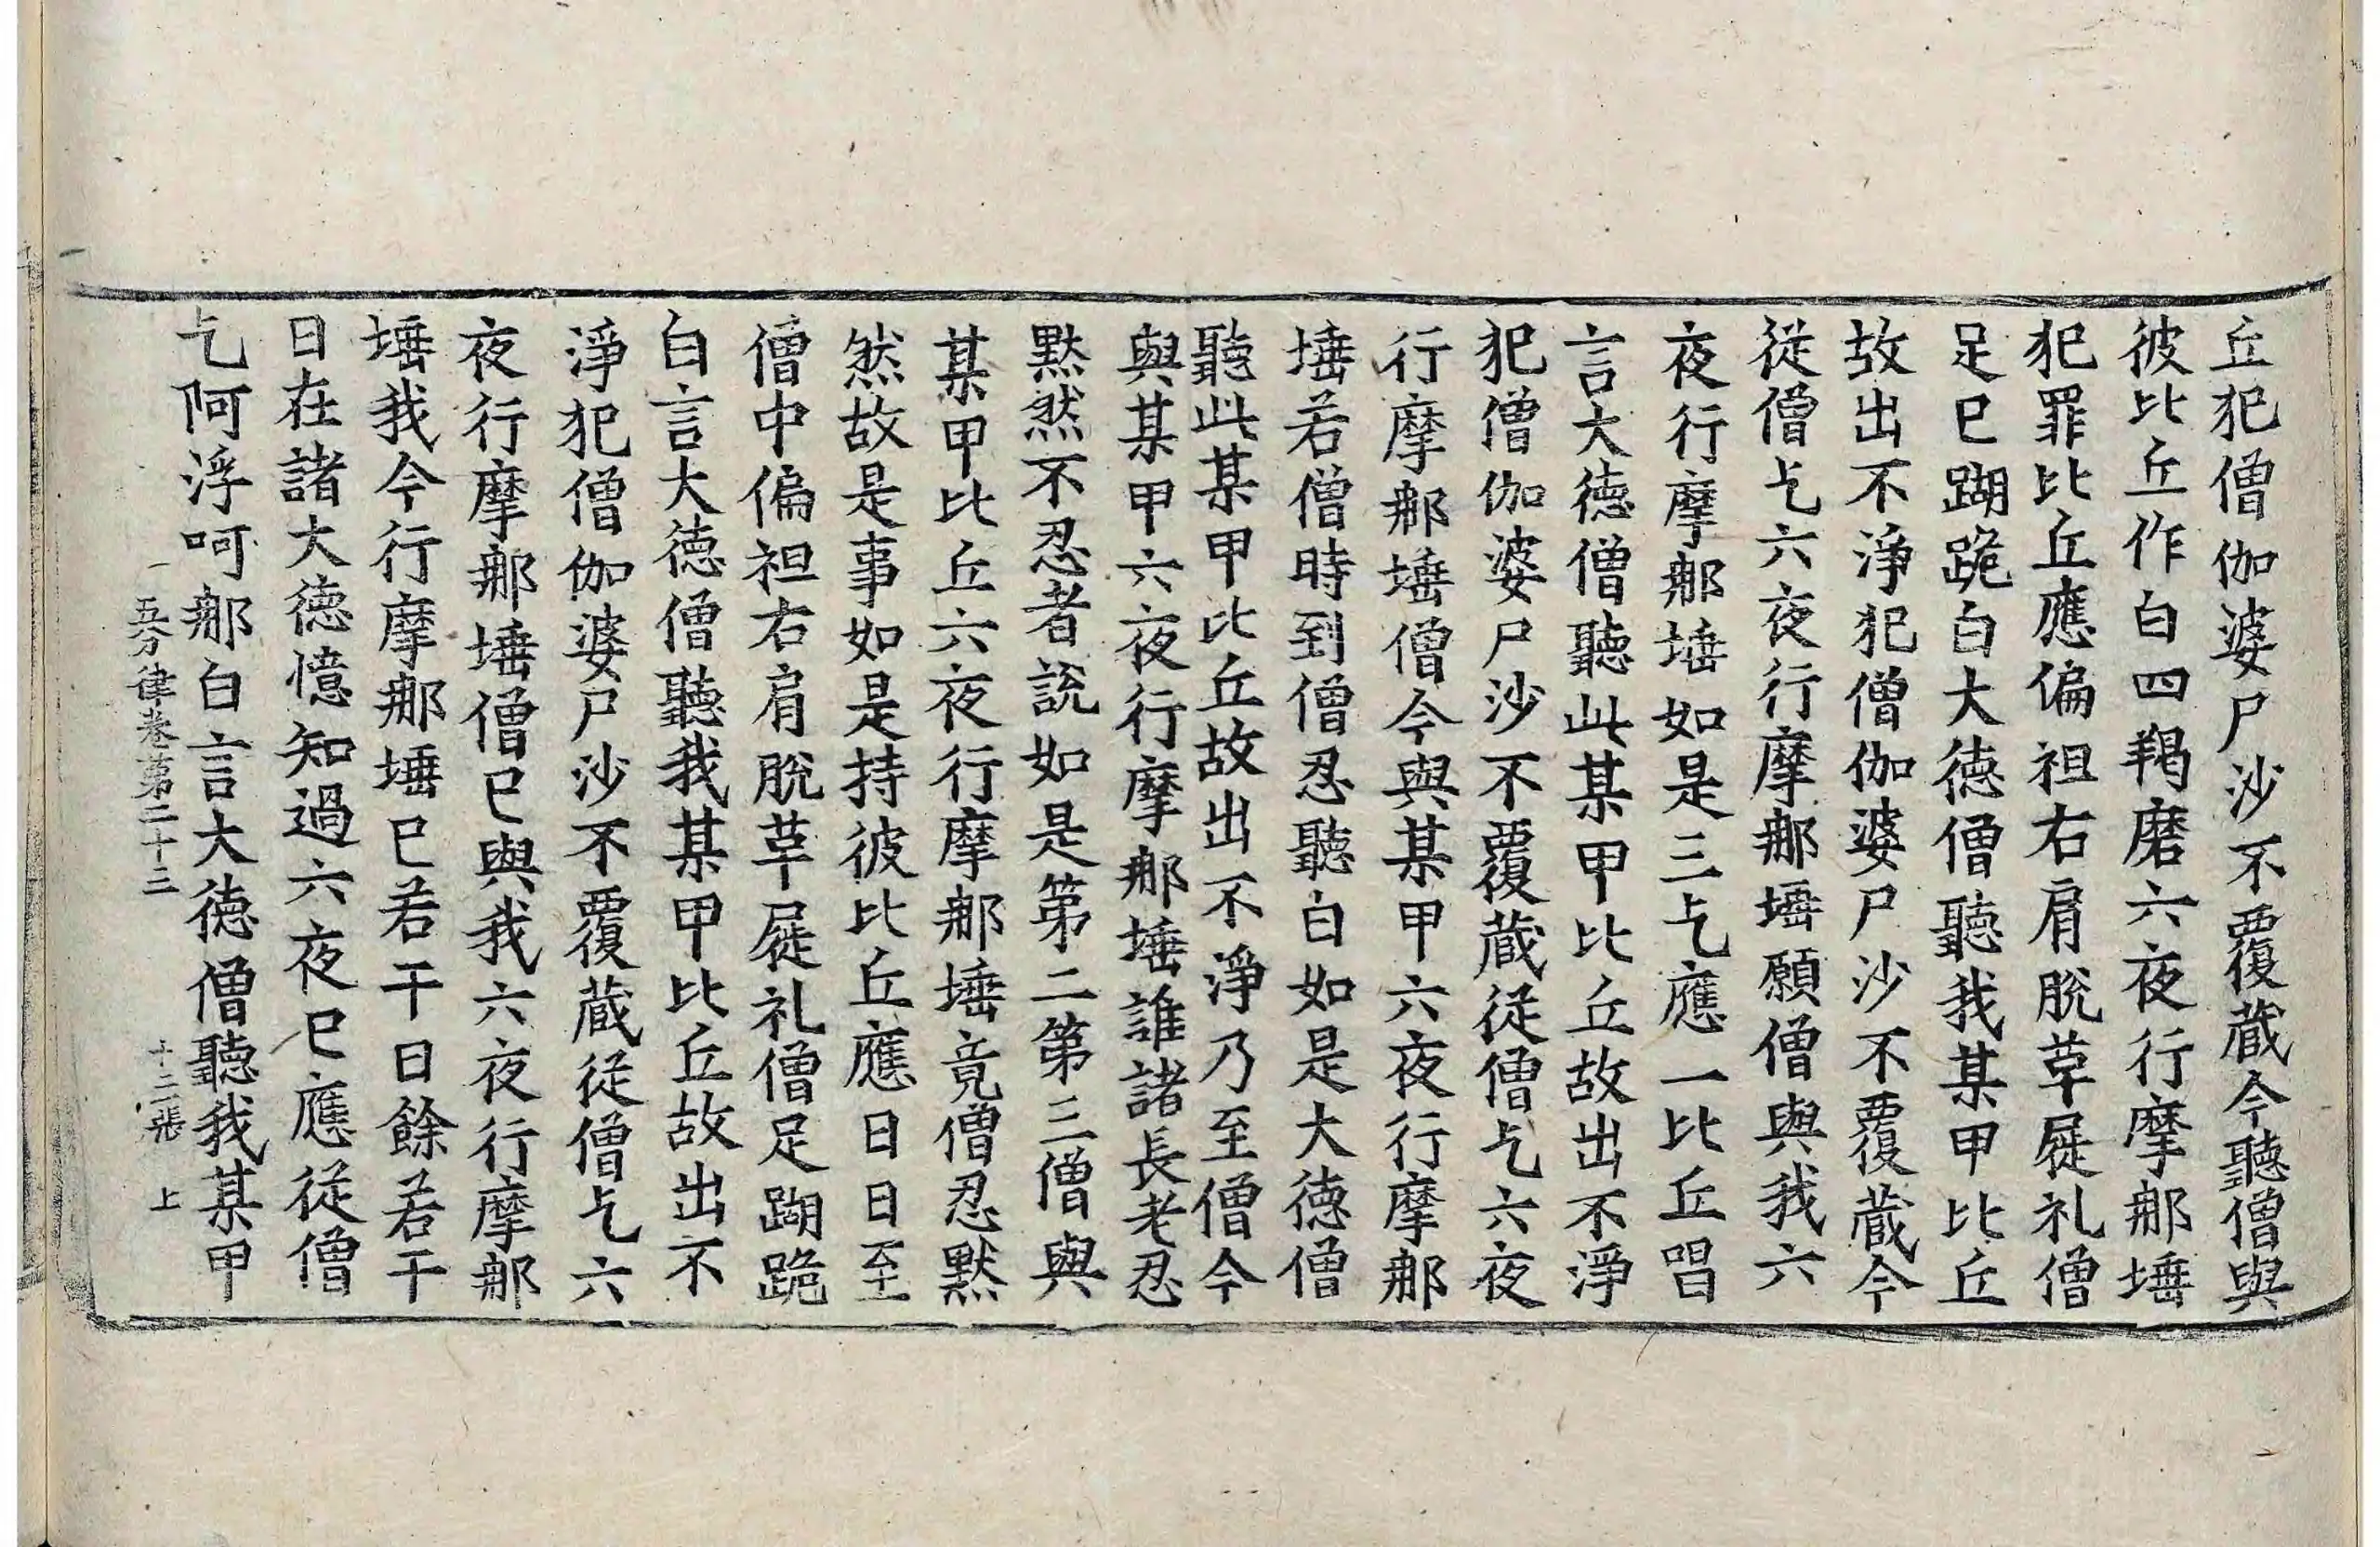 丘犯僧伽婆尸沙不覆蔵今聽僧與
彼比丘作白四羯磨六夜行摩那埵
犯罪比丘應偏袒右肩脫草屣礼僧
足已䠒跪白大徳僧聽我某甲比丘
故出不淨犯僧伽婆尸沙不覆蔵今
従僧乞六夜行摩那埵願僧與我六
夜行摩那埵如是三乞應一比丘唱
言大徳僧聽此某甲比丘故出不淨
犯僧伽婆尸沙不覆蔵従僧乞六夜
行摩那埵僧今與某甲六夜行摩那
埵若僧時到僧忍聽白如是大徳僧
聽此某甲比丘故出不淨乃至僧今
與某甲六夜行摩那埵誰諸長老忍
黙然不忍者說如是第二第三僧與
某甲比丘六夜行摩那埵竟僧忍黙
然故是事如是持彼比丘應日日至
僧中偏袒右肩脫草屣礼僧足䠒跪
白言大徳僧聽我某甲比丘故出不
淨犯僧伽婆尸沙不覆蔵従僧乞六
夜行摩那埵僧已與我六夜行摩那
埵我今行摩那埵已若干日餘若干
日在諸大徳憶知過六夜已應従僧
乞阿浮呵那白言大徳僧聽我某甲
五分律卷第二十三 十二張 上